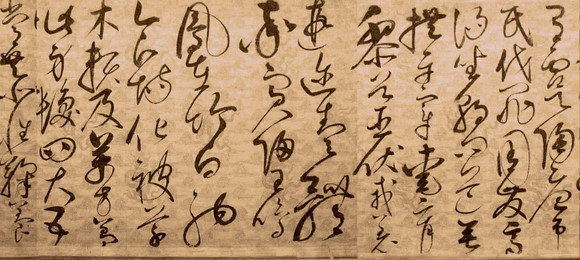 有虞陶唐弔
民伐罪周發商
湯坐朝問道垂
拱平章愛育
黎首臣伏戎羌
遐邇壹體
率賓歸王鳴
鳳在樹白駒
食場化被草
木賴及萬方蓋
此身髮四大五
常恭惟鞠養